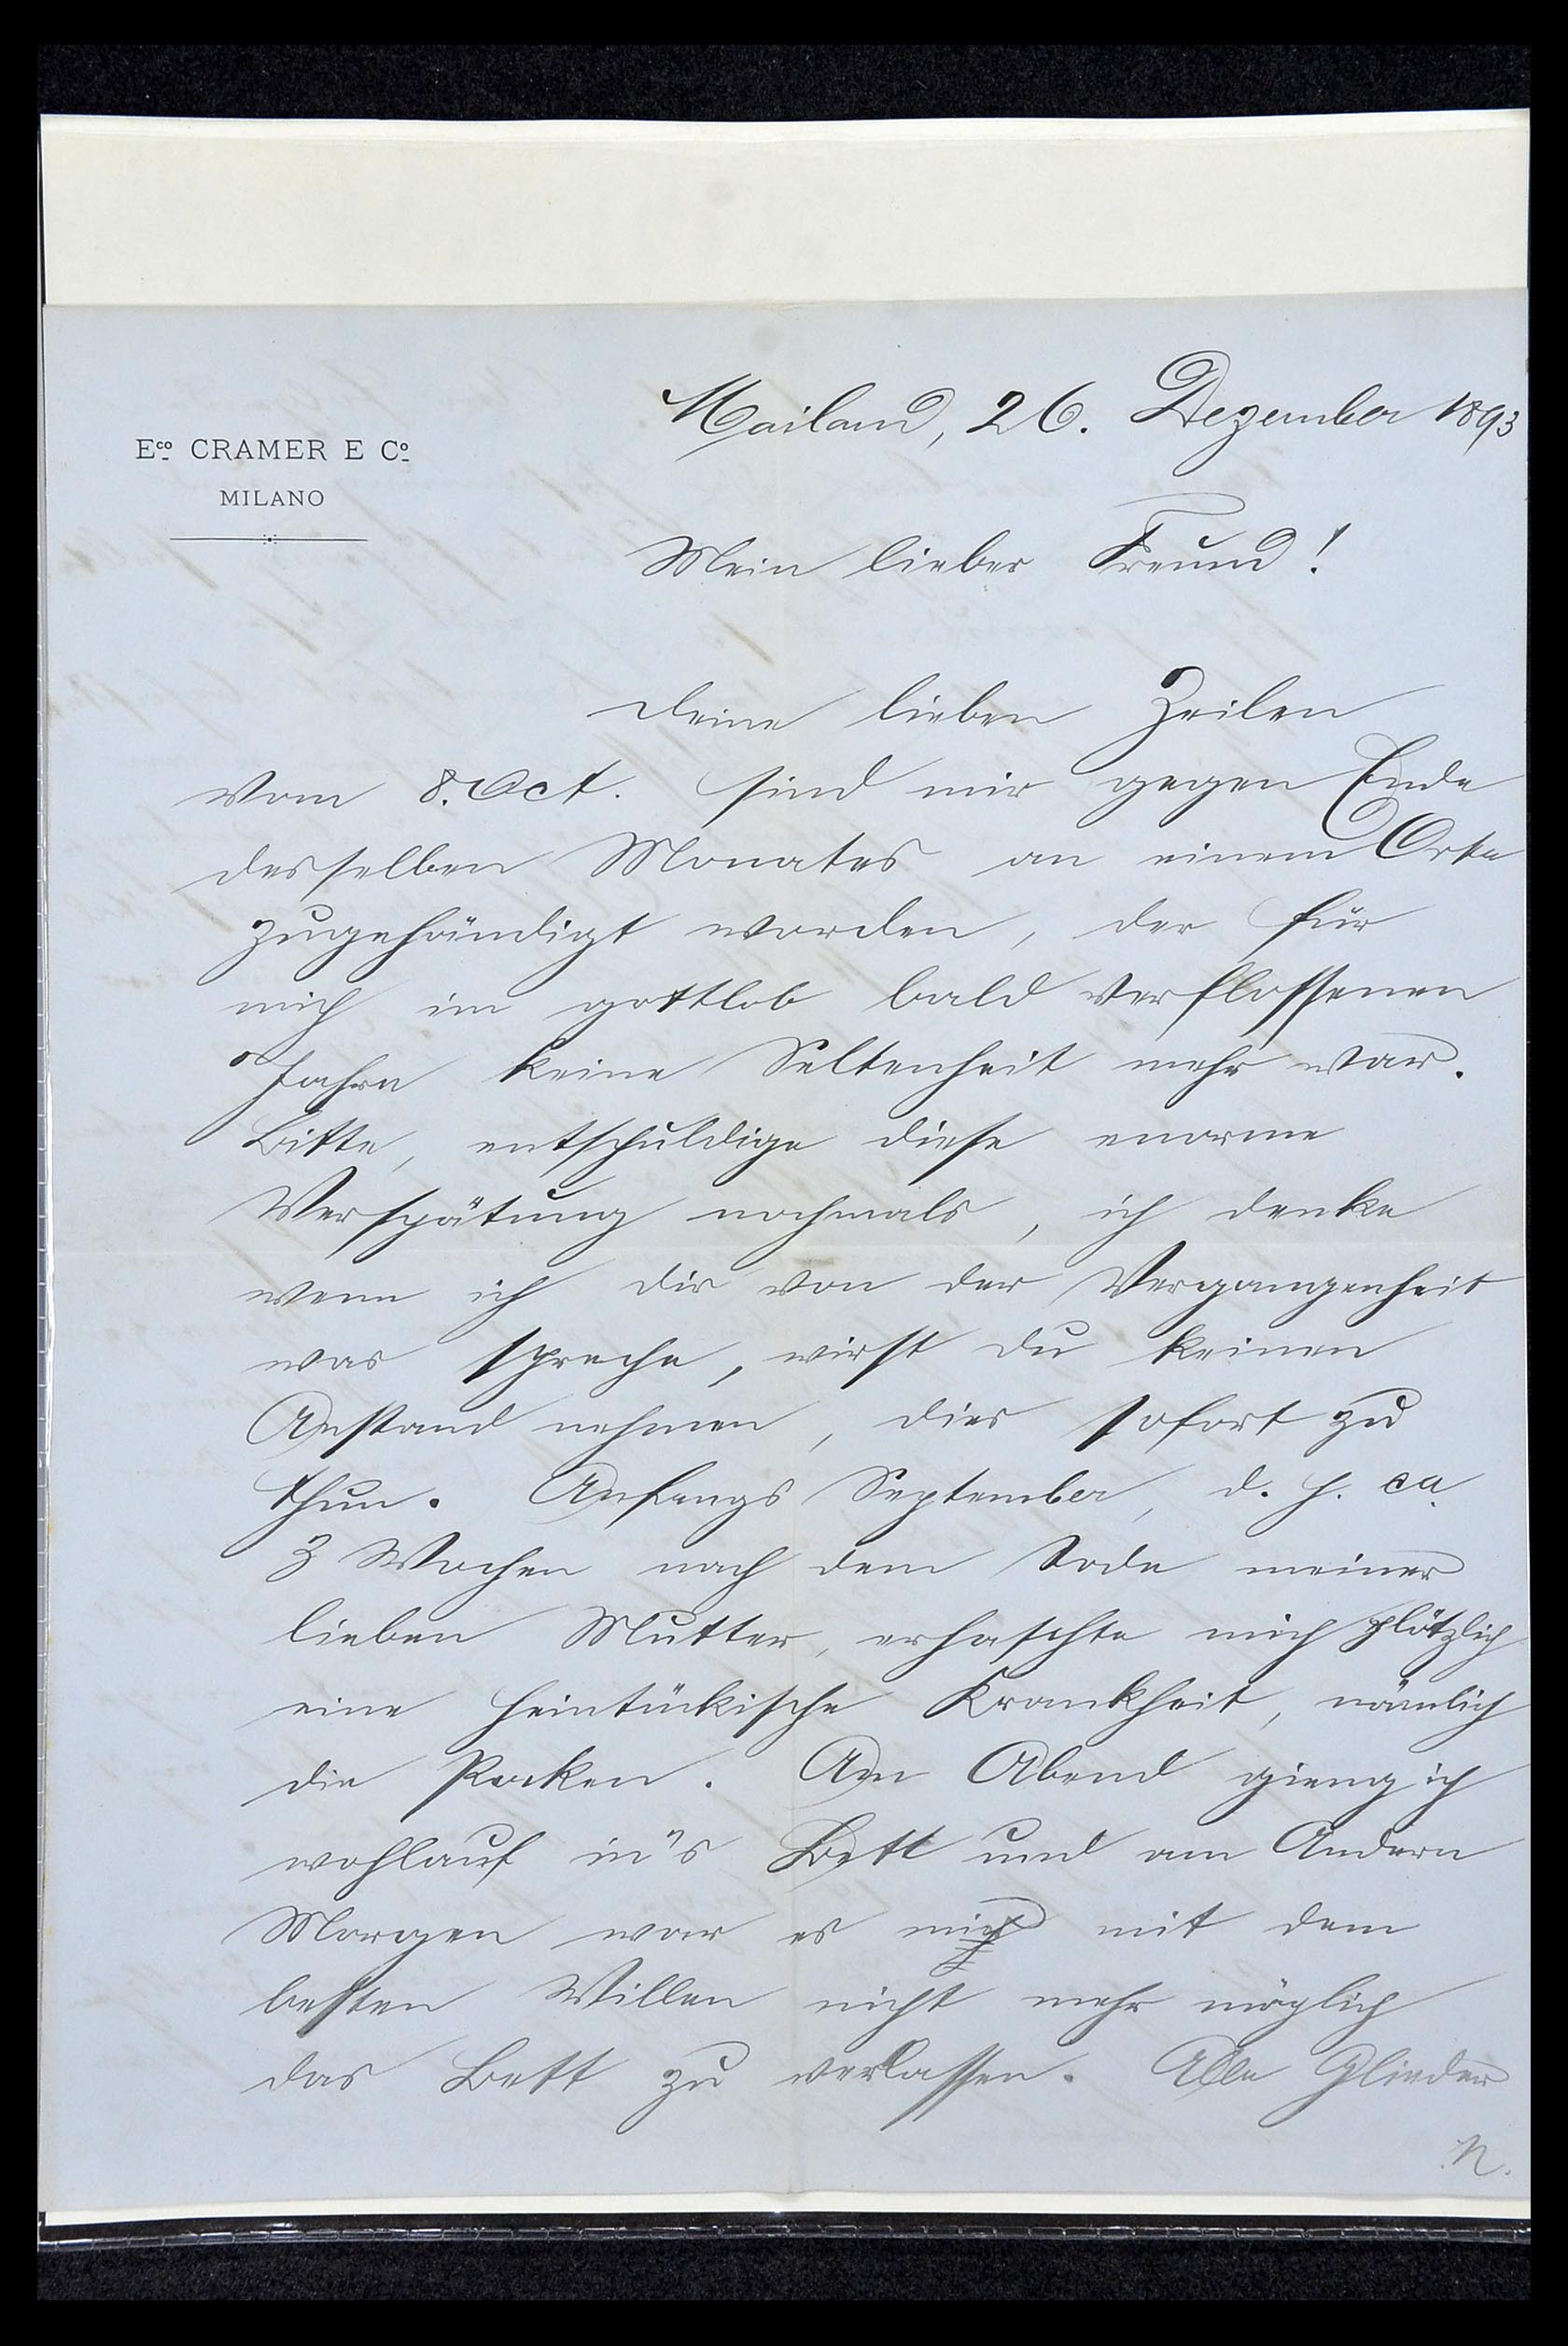 Mailand, 26. Dezember 1893
Eco CRAMER E Co
MILANO
Mein lieber Freund!
Deine lieben Zeilen
vom 8. Oct. sind mir gegen Ende
desselben Monates an einem Orte
zugehändigt worden, der für
mich im gottlob bald verflossenen
Jahre keine Seltenheit mehr war.
Bitte, entschuldige diese enorme
Verspätung nochmals, ich denke
wenn ich dir von der Vergangenheit
was spreche, wirst du keinen
Anstand nehmen, dies sofort zu
thun. Anfangs September, d. h. ca
3 Wochen nach dem Tode meiner
lieben Mutter, erhaschte mich plötzlich
eine heimtückische Krankheit, nämlich
die Pocken. Am Abend gieng ich
wohlauf in's Bett und am Andern
Morgen war es mir mit dem
besten Willen nicht mehr möglich
das Bett zu verlassen. Alle Glieder
N.